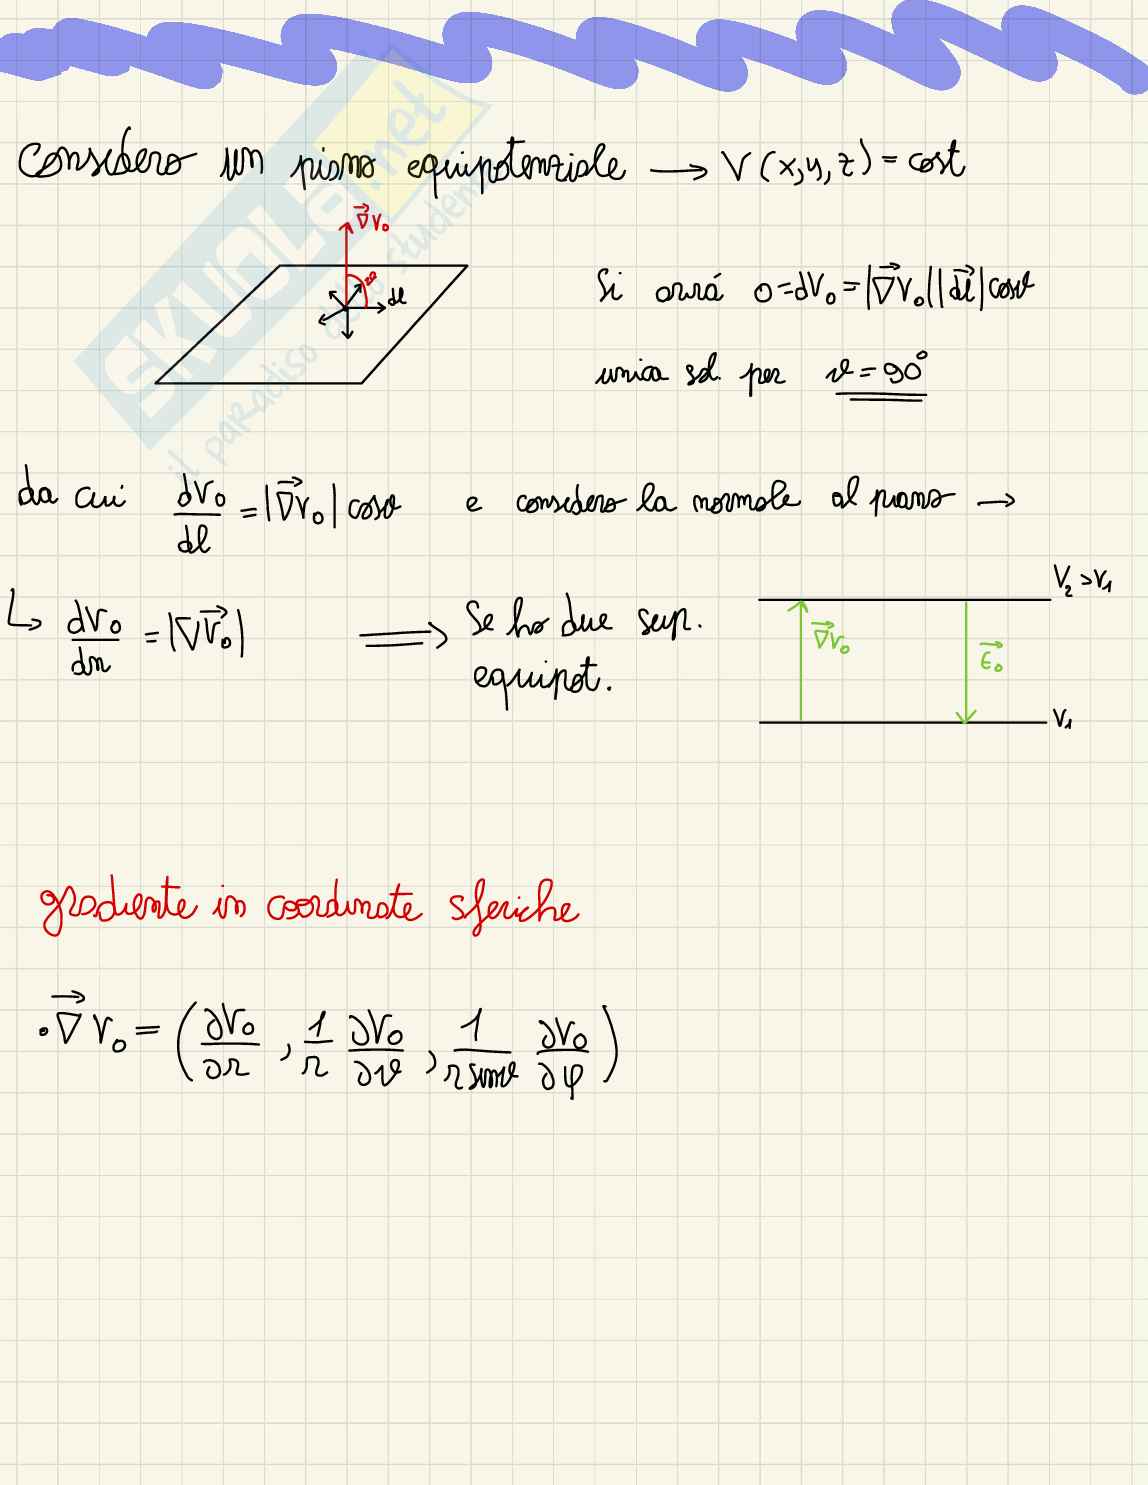 Considero un piano equipotenziale → V(x,y,z)=cost
∇V₀
dl
Si avrá 0=dV₀=|∇V₀||dl|cosϑ
unica sol. per ϑ=90°
da cui dV₀/dl = |∇V₀| cosϑ e considero la normale al piano →
↳ dV₀/dn = |∇V₀| ⟹ Se ho due sup.
equipot.
V₂>V₁
∇V₀
E₀
V₁
gradiente in coordinate sferiche
• ∇V₀ = (∂V₀/∂r , 1/r ∂V₀/∂ϑ , 1/(r sinϑ) ∂V₀/∂φ)
SKUOLA.net
il paradiso dello studente